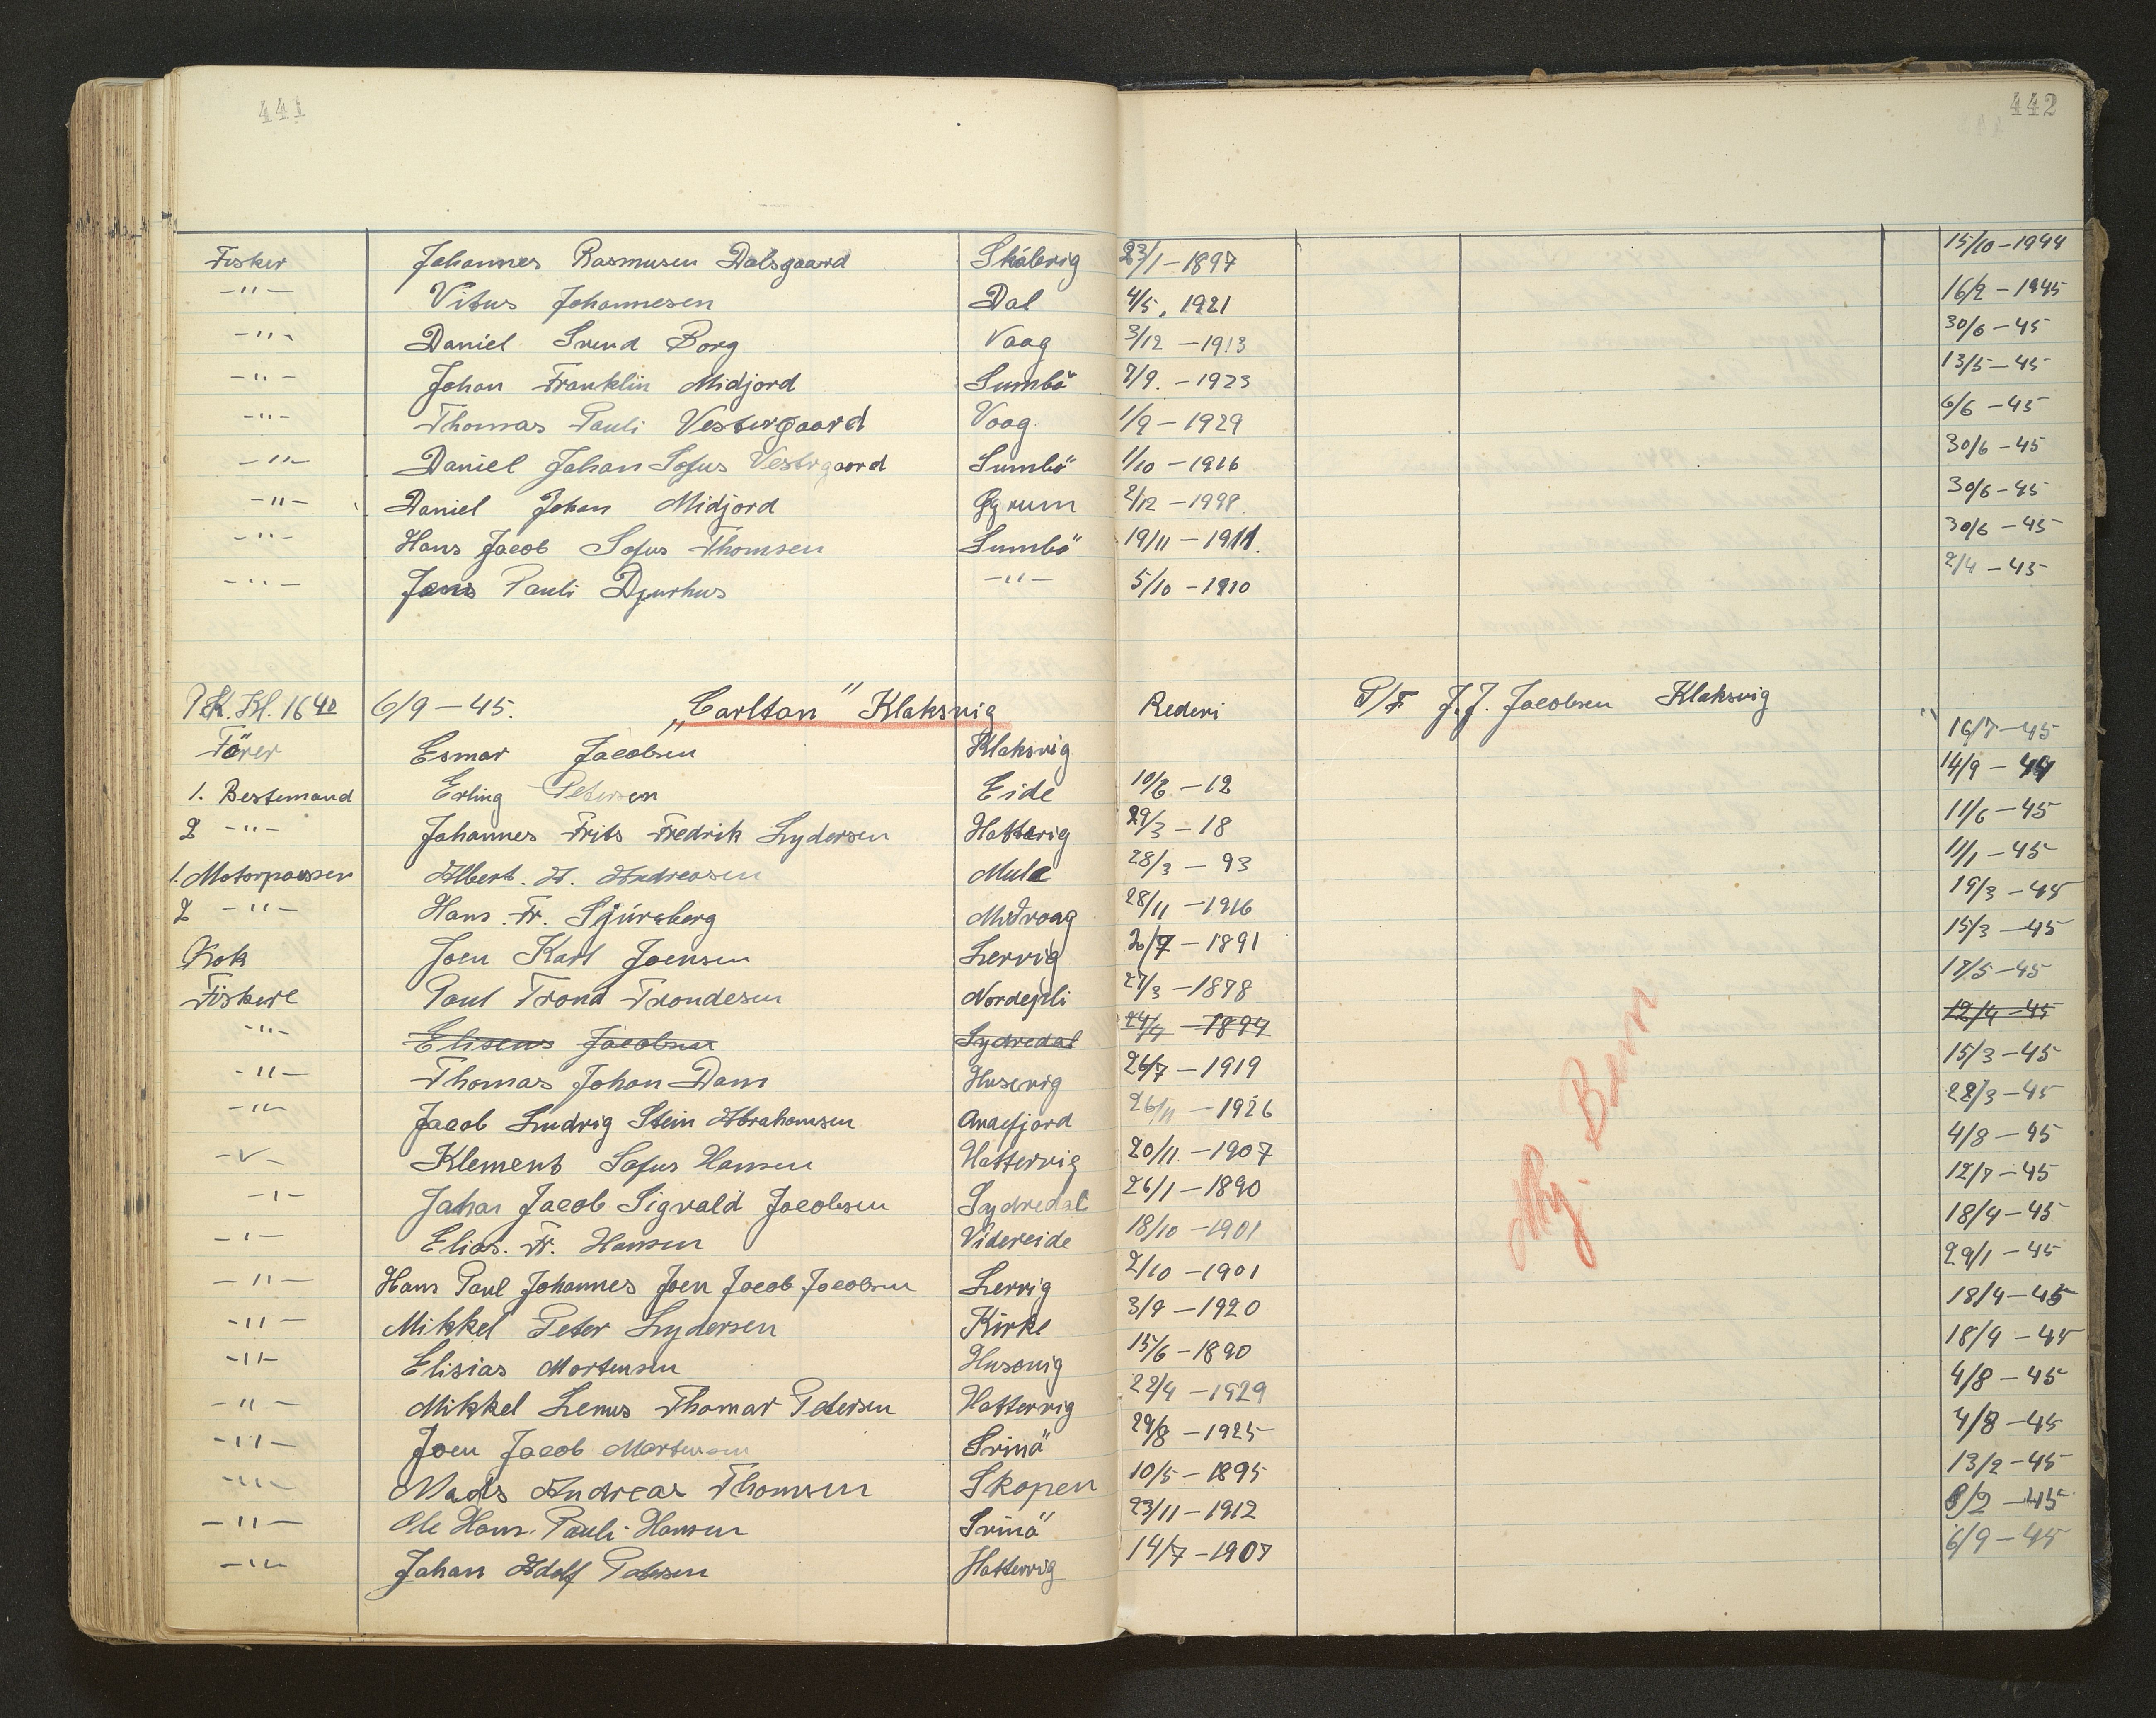 441
442
Fisker Johannes Rasmusen Dalsgaard Skálevig 23/1 – 1897 15/10 – 1944
–"– Vitus Johannesen Dal 4/5, 1921 16/2 – 1945
–"– Daniel Svend Borg Vaag 3/12 – 1913 30/6 – 45
–"– Johan Franklin Midjord Sumbö 7/9. – 1923 13/5 – 45
–"– Thomas Pauli Vestergaard Vaag 1/9 – 1929 6/6 – 45
–"– Daniel Johan Sofus Vestrgaard Sumbö 1/10 – 1916 30/6 – 45
–"– Daniel Johan Midjord 2/12 – 30/6 – 45
–"– Hans Jacob Sofus Thomsen Sumbö 19/11 – 1911. 30/6 – 45
–"– Jens Pauli Djurhus –"– 5/10 – 1910 2/4 – 45
P.sk. Kl. 1640 6/9 – 45. „Carlton" Klaksvig Rederi P/F J.J. Jacobsen Klaksvig
Förer Esmar Jacobsen Klaksvig 16/7 – 45
1. Bestemand Erling Petersen Eide 10/6 – 12 14/9 – 44
2 –"– Johannes Frits Fredrik Lydersen Hattervig 29/3 – 18 11/6 – 45
1. Motorpasser Albert. H. Andreasen Mula 28/3 – 93 11/1 – 45
2 –"– Hans. Fr. Sjúrdberg Midvaag 28/11 – 1916 19/3 – 45
Kok Joen Karl Joensen Lervig 2/7 – 1891 15/3 – 45
Fiskere Paul Trond Trondesen Nordepili 27/3 – 1878 17/5 – 45
–"– Eliseus Jacobsen Sydredal 24/4 – 1894 12/4 – 45
–"– Thomas Johan Dam Husevig 26/7 – 1919 15/3 – 45
–"– Jacob Ludvig Stein Abrahamsen Anafjord 26/11 – 1926 28/3 – 45
–"– Klement Sofus Hansen Hattervig 20/11 – 1907 4/8 – 45
–"– Johan Jacob Sigvald Jacobsen Sydredal 26/1 – 1890 12/7 – 45
–"– Elias. Fr. Hansen Videreide 18/10 – 1901 18/4 – 45
–"– Hans Paul Johannes Joen Jacob Jacobsen Lervig 2/10 – 1901 29/1 – 45
–"– Mikkel Peter Lydersen Kirke 3/9 – 1920 18/4 – 45
–"– Elisias Mortensen Husevig 15/6 – 1890 18/4 – 45
–"– Mikkel Lenus Thomar Pedersen Hattervig 22/4 – 1929 4/8 – 45
–"– Joen Jacob Mortensen Svinö 29/8 – 1925 4/8 – 45
–"– Mads Andreas Thomsen Skopen 10/5 – 1895 13/2 – 45
–"– Ole Hans. Pauli Hansen Svinö 23/11 – 1912 8/2 – 45
–"– Johan Adolf Petersen Hattervig 14/7 – 1907 6/9 – 45